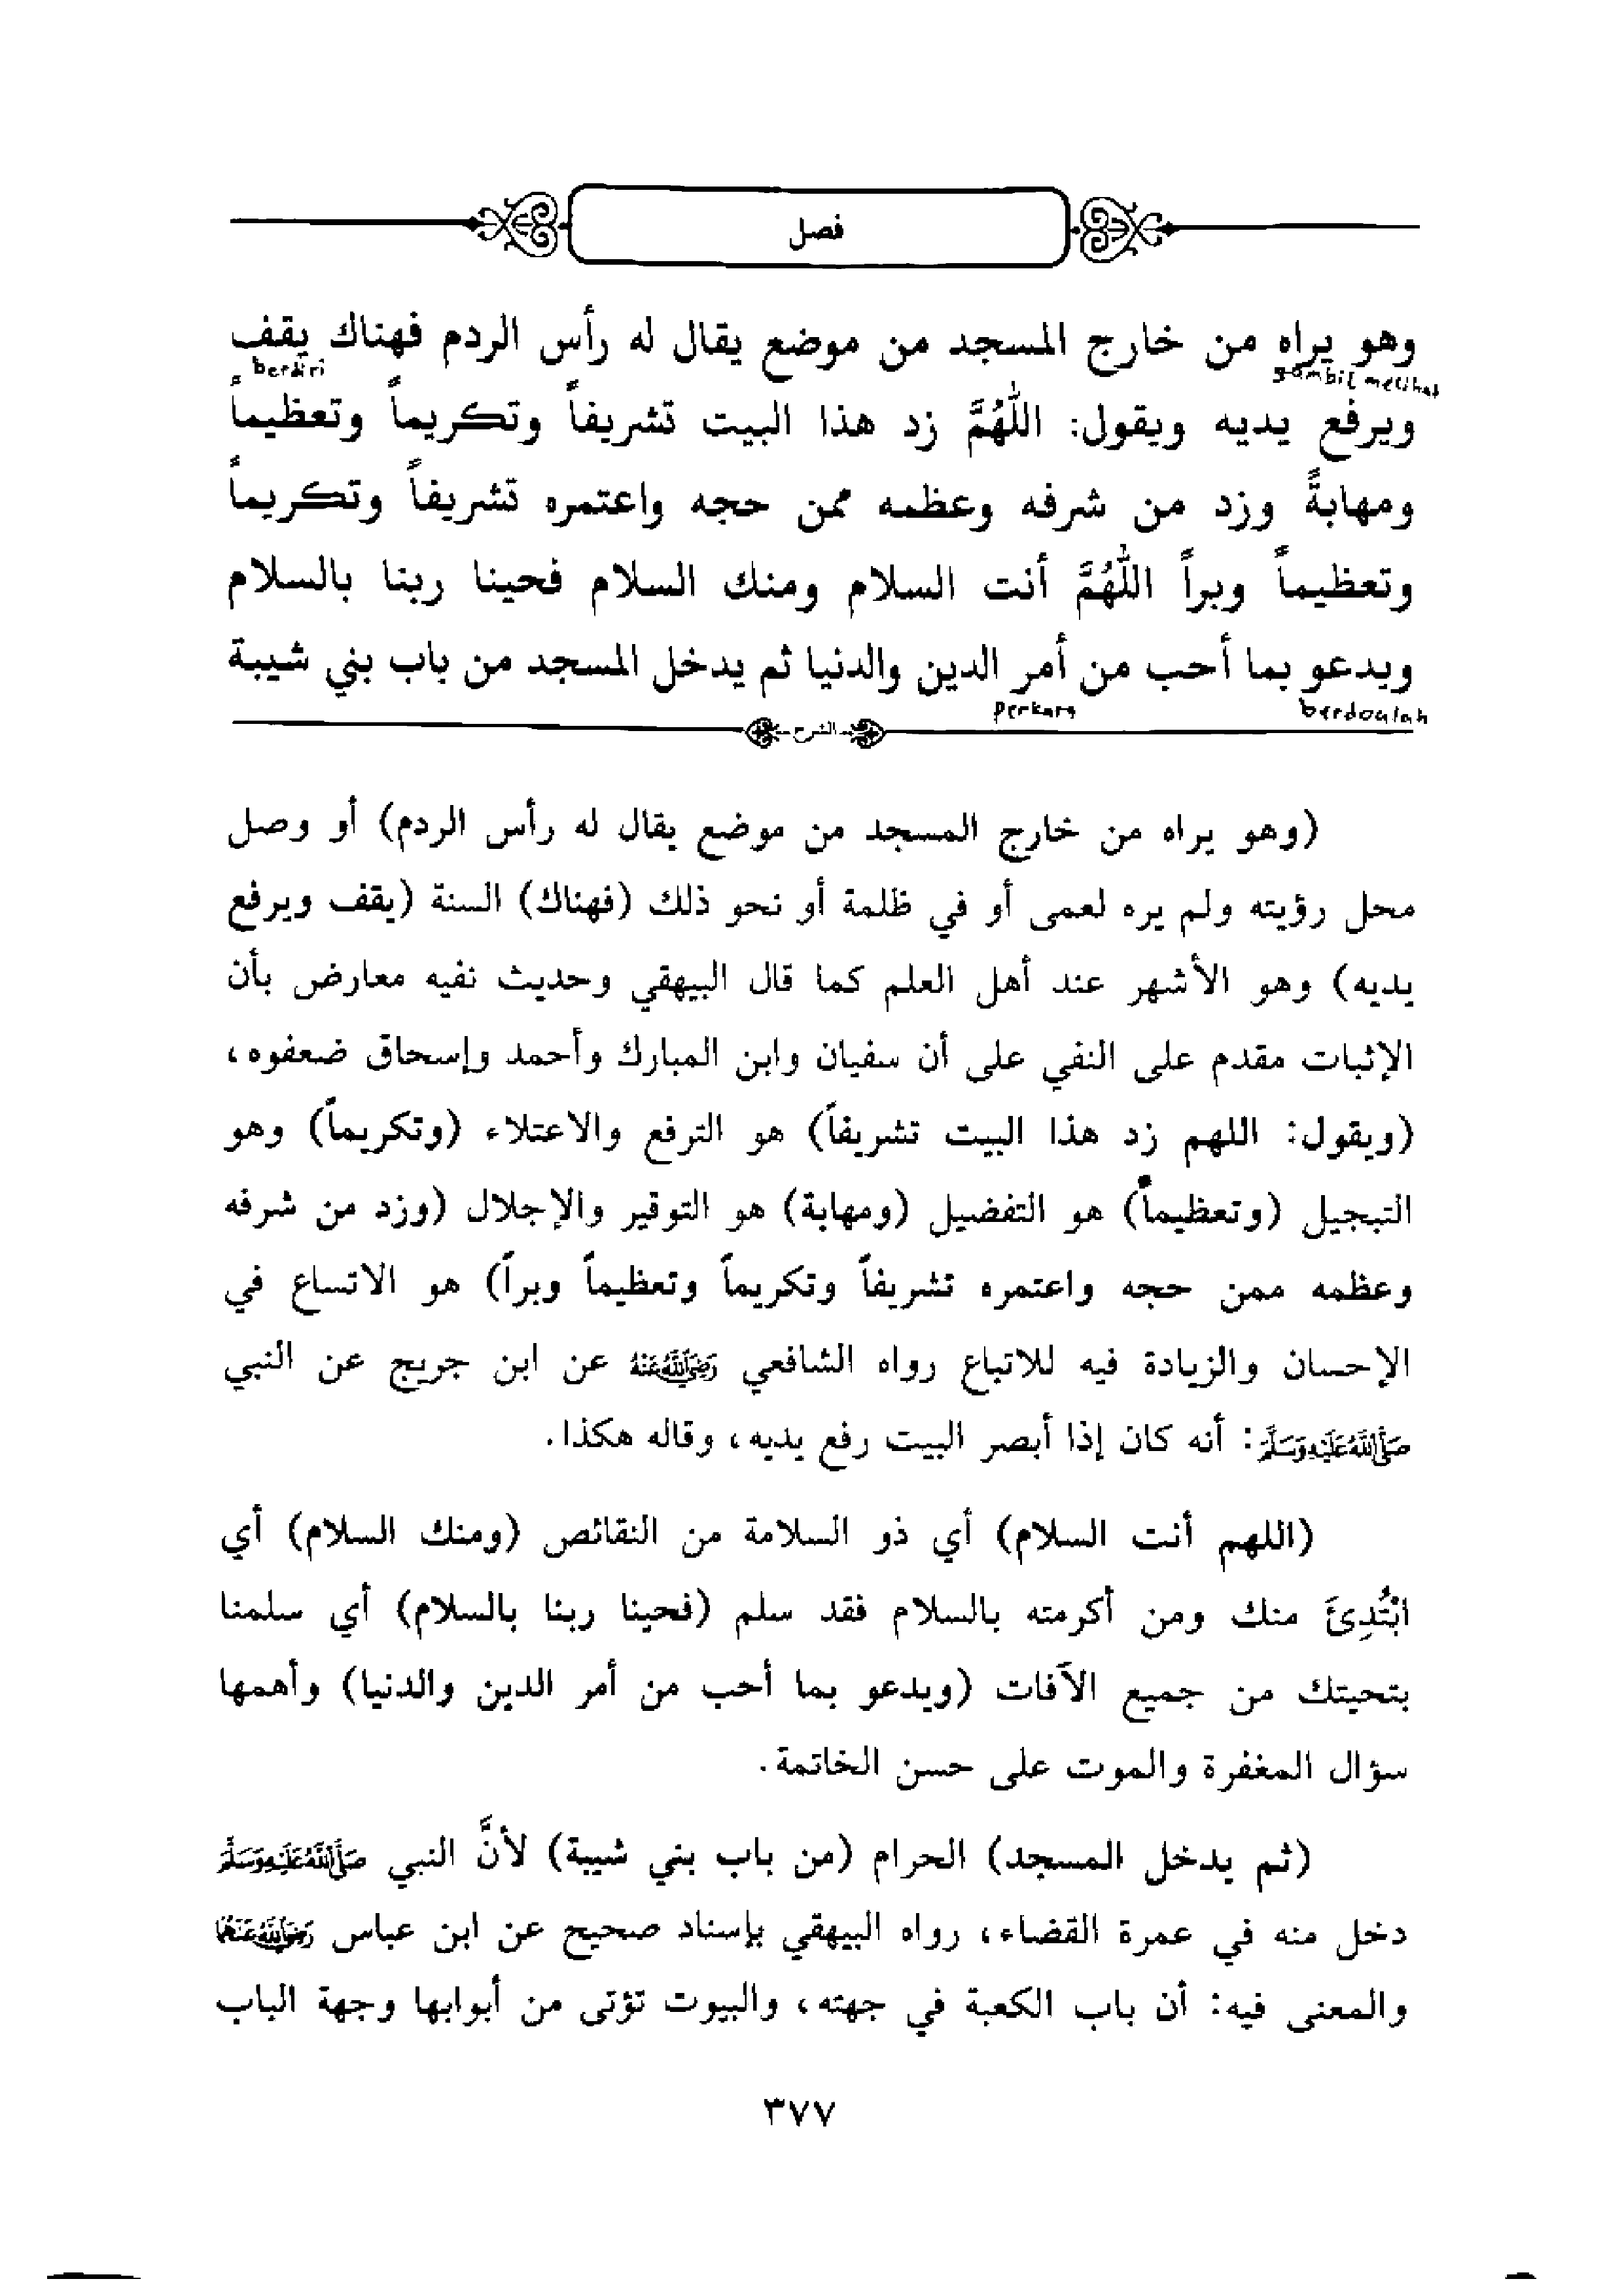 فصل
وهو يراه من خارج المسجد من موضع يقال له رأس الردم فهناك يقف
berdiri
sambil melihat
ويرفع يديه ويقول: اللَّهُمَّ زد هذا البيت تشريفاً وتكريماً وتعظيماً
ومهابةً وزد من شرفه وعظمه ممن حجه واعتمره تشريفاً وتكريماً
وتعظيماً وبراً اللَّهُمَّ أنت السلام ومنك السلام فحينا ربنا بالسلام
ويدعو بما أحب من أمر الدين والدنيا ثم يدخل المسجد من باب بني شيبة
berdoalah
perkara
الشرح
(وهو يراه من خارج المسجد من موضع يقال له رأس الردم) أو وصل
محل رؤيته ولم يره لعمى أو في ظلمة أو نحو ذلك (فهناك) السنة (يقف ويرفع
يديه) وهو الأشهر عند أهل العلم كما قال البيهقي وحديث نفيه معارض بأن
الإثبات مقدم على النفي على أن سفيان وابن المبارك وأحمد وإسحاق ضعفوه،
(ويقول: اللهم زد هذا البيت تشريفاً) هو الترفع والاعتلاء (وتكريماً) وهو
التبجيل (وتعظيماً) هو التفضيل (ومهابة) هو التوقير والإجلال (وزد من شرفه
وعظمه ممن حجه واعتمره تشريفاً وتكريماً وتعظيماً وبراً) هو الاتساع في
الإحسان والزيادة فيه للاتباع رواه الشافعي رَضِيَاللَّهُعَنْهُ عن ابن جريج عن النبي
صَلَّىاللَّهُعَلَيْهِوَسَلَّمَ: أنه كان إذا أبصر البيت رفع يديه، وقاله هكذا.
(اللهم أنت السلام) أي ذو السلامة من النقائص (ومنك السلام) أي
ابْتُدِئَ منك ومن أكرمته بالسلام فقد سلم (فحينا ربنا بالسلام) أي سلمنا
بتحيتك من جميع الآفات (ويدعو بما أحب من أمر الدين والدنيا) وأهمها
سؤال المغفرة والموت على حسن الخاتمة.
(ثم يدخل المسجد) الحرام (من باب بني شيبة) لأنَّ النبي صَلَّىاللَّهُعَلَيْهِوَسَلَّمَ
دخل منه في عمرة القضاء، رواه البيهقي بإسناد صحيح عن ابن عباس رَضِيَاللَّهُعَنْهُمَا
والمعنى فيه: أن باب الكعبة في جهته، والبيوت تؤتى من أبوابها وجهة الباب
٣٧٧